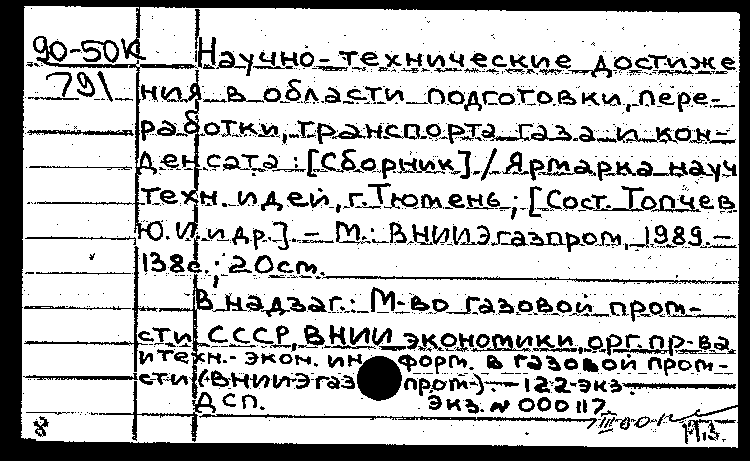 90-50К Научно-технические достиже
791 ния в области подготовки, пере-
работки, транспорта газа и кон-
денсата : [Сборник] / Ярмарка науч
техн. идей, г. Тюмень ; [Сост. Топчев
Ю.И. и др.]. – М. : ВНИИЭгазпром, 1989. –
138с. ; 20 см.
В надзаг.: М-во газовой пром-
сти СССР, ВНИИ экономики, орг. пр-ва
и техн.-экон. информ. в газовой пром-
сти (ВНИИЭгазпром). – 122 экз.
ДСП. Экз. № 000117
8